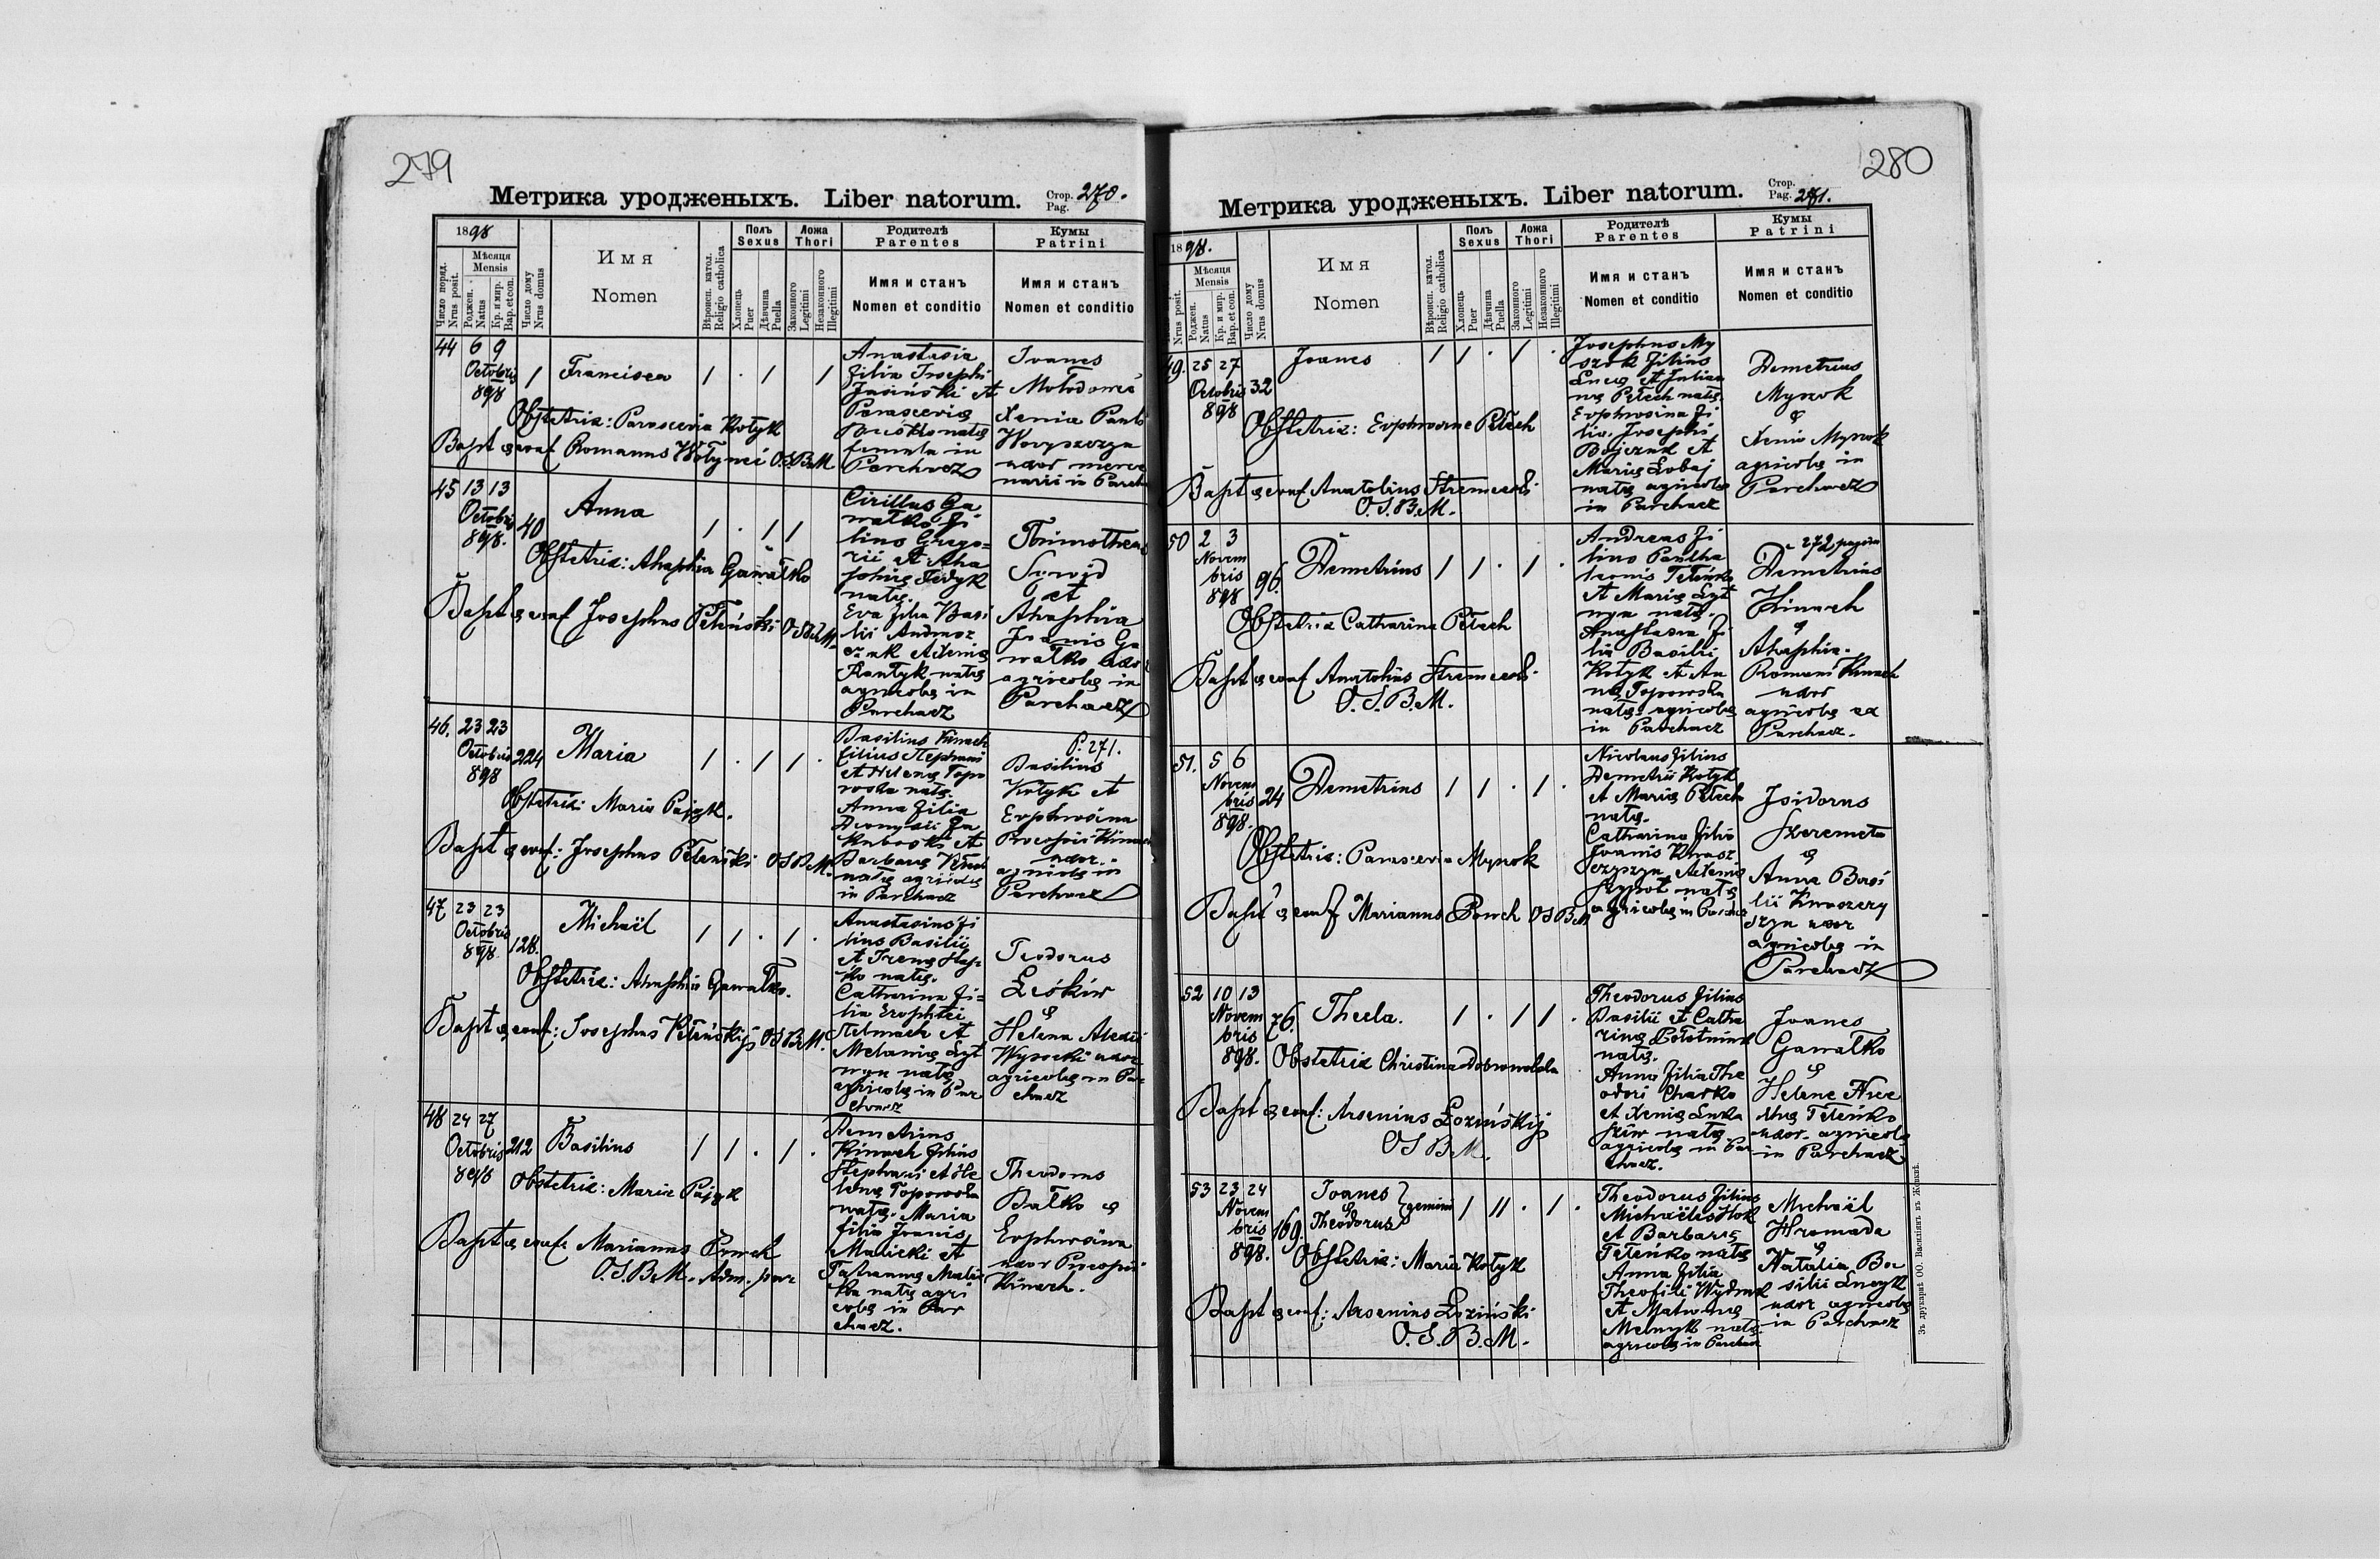 279
Метрика уродженыхъ. Liber natorum. Стор. Pag. 270.
1898
Число поряд. Nrus posit.
Мѣсяця Mensis
Роджен. Natus
Кр. и мир. Bap. et con.
Число дому Nrus domus
Имя
Nomen
Вѣроисп. катол. Religio catholica
Полъ Sexus
Хлопець Puer
Дѣвчина Puella
Ложа Thori
Законного Legitimi
Незаконного Illegitimi
Родителѣ Parentes
Имя и станъ
Nomen et conditio
Кумы Patrini
Имя и станъ
Nomen et conditio
44 6 9
Octobris
898
1
Francisca
1 . 1 1
Obstetrix: Parascevia Kotyk
Bapt & conf Romanus Wołynec O.S.B.M
Anastasia
filia Josephi
Jasiński et
Parasceviæ
natæ
famula in
Parchacz
Ioanes
Xenia
uxor
in
45 13 13
Octobris
898.
40
Anna
1 . 1 1
Obstetrix: Ahaphia Gawałko
Bapt & conf Josephus Peleński OSBM.
Cirillus Ga
wałko fi
lius Grego-
rii et Aha
phiæ Fedyk
natæ.
Eva filia Basi
lii
natæ
agricolæ in
Parchacz
et
Ahaphia
Joanis Ga
wałko uxor
agricolæ in
Parchacz
46. 23 23
Octobris
898
224
Maria
1 . 1 1 .
Obstetrix: Maria Pajzk.
Bapt & conf: Josephus Peleński OSBM.
Basilius Kinach
filius Stephani
et Helenæ Topo
rowska natæ.
Anna filia
et
Barbaræ
natæ agricolæ
in Parchacz
P. 271.
Basilius
Kotyk et
Evphrosina
Procopii Kinach
uxor
agricolæ in
Parchacz
47 23 23
Octobris
898
128.
Michaël
1 1 . 1 .
Obstetrix: Ahaphia Gawałko.
Bapt & conf: Josephus Peleńskij OSBM.
Anastasius fi
lius Basilii
et Irenæ
natæ.
Catharina fi-
lia
et
Melaniæ Lyt
wyn natæ
agricolæ in Par
chacz
Teodorus
Leśkiw
&
Helena
Wysocki uxor
agricolæ in Par-
chacz
48 24 27
Octobris
898
212
Basilius
1 1 . 1 .
Obstetrix: Maria Pajzk
Bapt & conf Marianus
O.S.B.M. Adm. par
Demetrius
Kinach filius
Stephani et He
lenæ Toporowska
natæ. Maria
filia Joanis
Malicki et
natæ agri
colæ in Par
chacz.
Theodorus
Bałko &
Evphrosina
uxor Procopii
Kinach.
280
Метрика уродженыхъ. Liber natorum. Стор. Pag. 271.
1898.
Nrus posit.
Мѣсяця Mensis
Роджен. Natus
Кр. и мир. Bap. et con.
Число дому Nrus domus
Имя
Nomen
Вѣроисп. катол. Religio catholica
Полъ Sexus
Хлопець Puer
Дѣвчина Puella
Ложа Thori
Законного Legitimi
Незаконного Illegitimi
Родителѣ Parentes
Имя и станъ
Nomen et conditio
Кумы Patrini
Имя и станъ
Nomen et conditio
49. 25 27
Octobris
898
32
Joanes
1 1 . 1 .
Obstetrix: Evphrosine Pełech
Bapt & conf Anatolius
O.S.B.M.
Josephus My
szok filius
Lucæ et Julian
næ Pełech natæ.
Evphrosina fi
lia Josephi
Bojczuk et
Mariæ Łobaj
natæ agricolæ
in Parchacz
Demetrius
Myszok
&
Xenia Myszok
agricolæ in
Parchacz
50 2 3
Novem
bris
898
96.
Demetrius
1 1 . 1 .
Obstetrix Catharina Pełech
Bapt & conf Anatolius
O.S.B.M.
Andreas fi
lius Pantha
leonis
et Mariæ Lyt
wyn natæ.
Anastasia fi
lia Basilii
Kotyk et An
næ Toporowska
natæ agricolæ
in Parchacz
272 pagina
Demetrius
Kinach
&
Ahaphia
Romani Kinach
uxor
agricolæ ex
Parchacz.
51. 5 6
Novem
bris
898.
24
Demetrius
1 1 . 1 .
Obstetrix: Parascevia Myszok
Bapt & conf Marianus OSBM
Nicolaus filius
Demetrii Kotyk
et Mariæ Pełech
natæ.
Catharina filia
Joanis
et Xeniæ
natæ
agricolæ in Parchacz
Isidorus
Szeremeta
&
Anna Basi
lii
uxor
agricolæ in
Parchacz
52 10 13
Novem
bris
898.
76.
Thecla.
1 . 1 1 .
Obstetrix Christina
Bapt & conf: Arsenius Łozińskij
OSBM.
Theodorus filius
Basilii et Catha
rinæ
natæ.
Anna filia The
odori Charko
et Xeniæ Luka
sziw natæ
agricolæ in Par
chacz.
Joanes
Gawałko
&
Helene
uxor agricolæ
in Parchacz
53 23 24
Novem
bris
898.
169.
Ioanes
&
Theodorus
gemini
1 11 . 1 .
Obstetrix: Maria Kotyk
Bapt & conf: Arsenius Łoziński
O.S.B.M.
Theodorus filius
Michaëlis Hok
et Barbaræ
Teleńko natæ
Anna filia
Theofili
et
Melnyk natæ
agricolæ in Parchacz
Michaël
Hromada
&
Natalia Ba
silii Lucyk
uxor agricolæ
in Parchacz
Зъ друкарнѣ ОО. Василіянъ въ Жовквѣ.